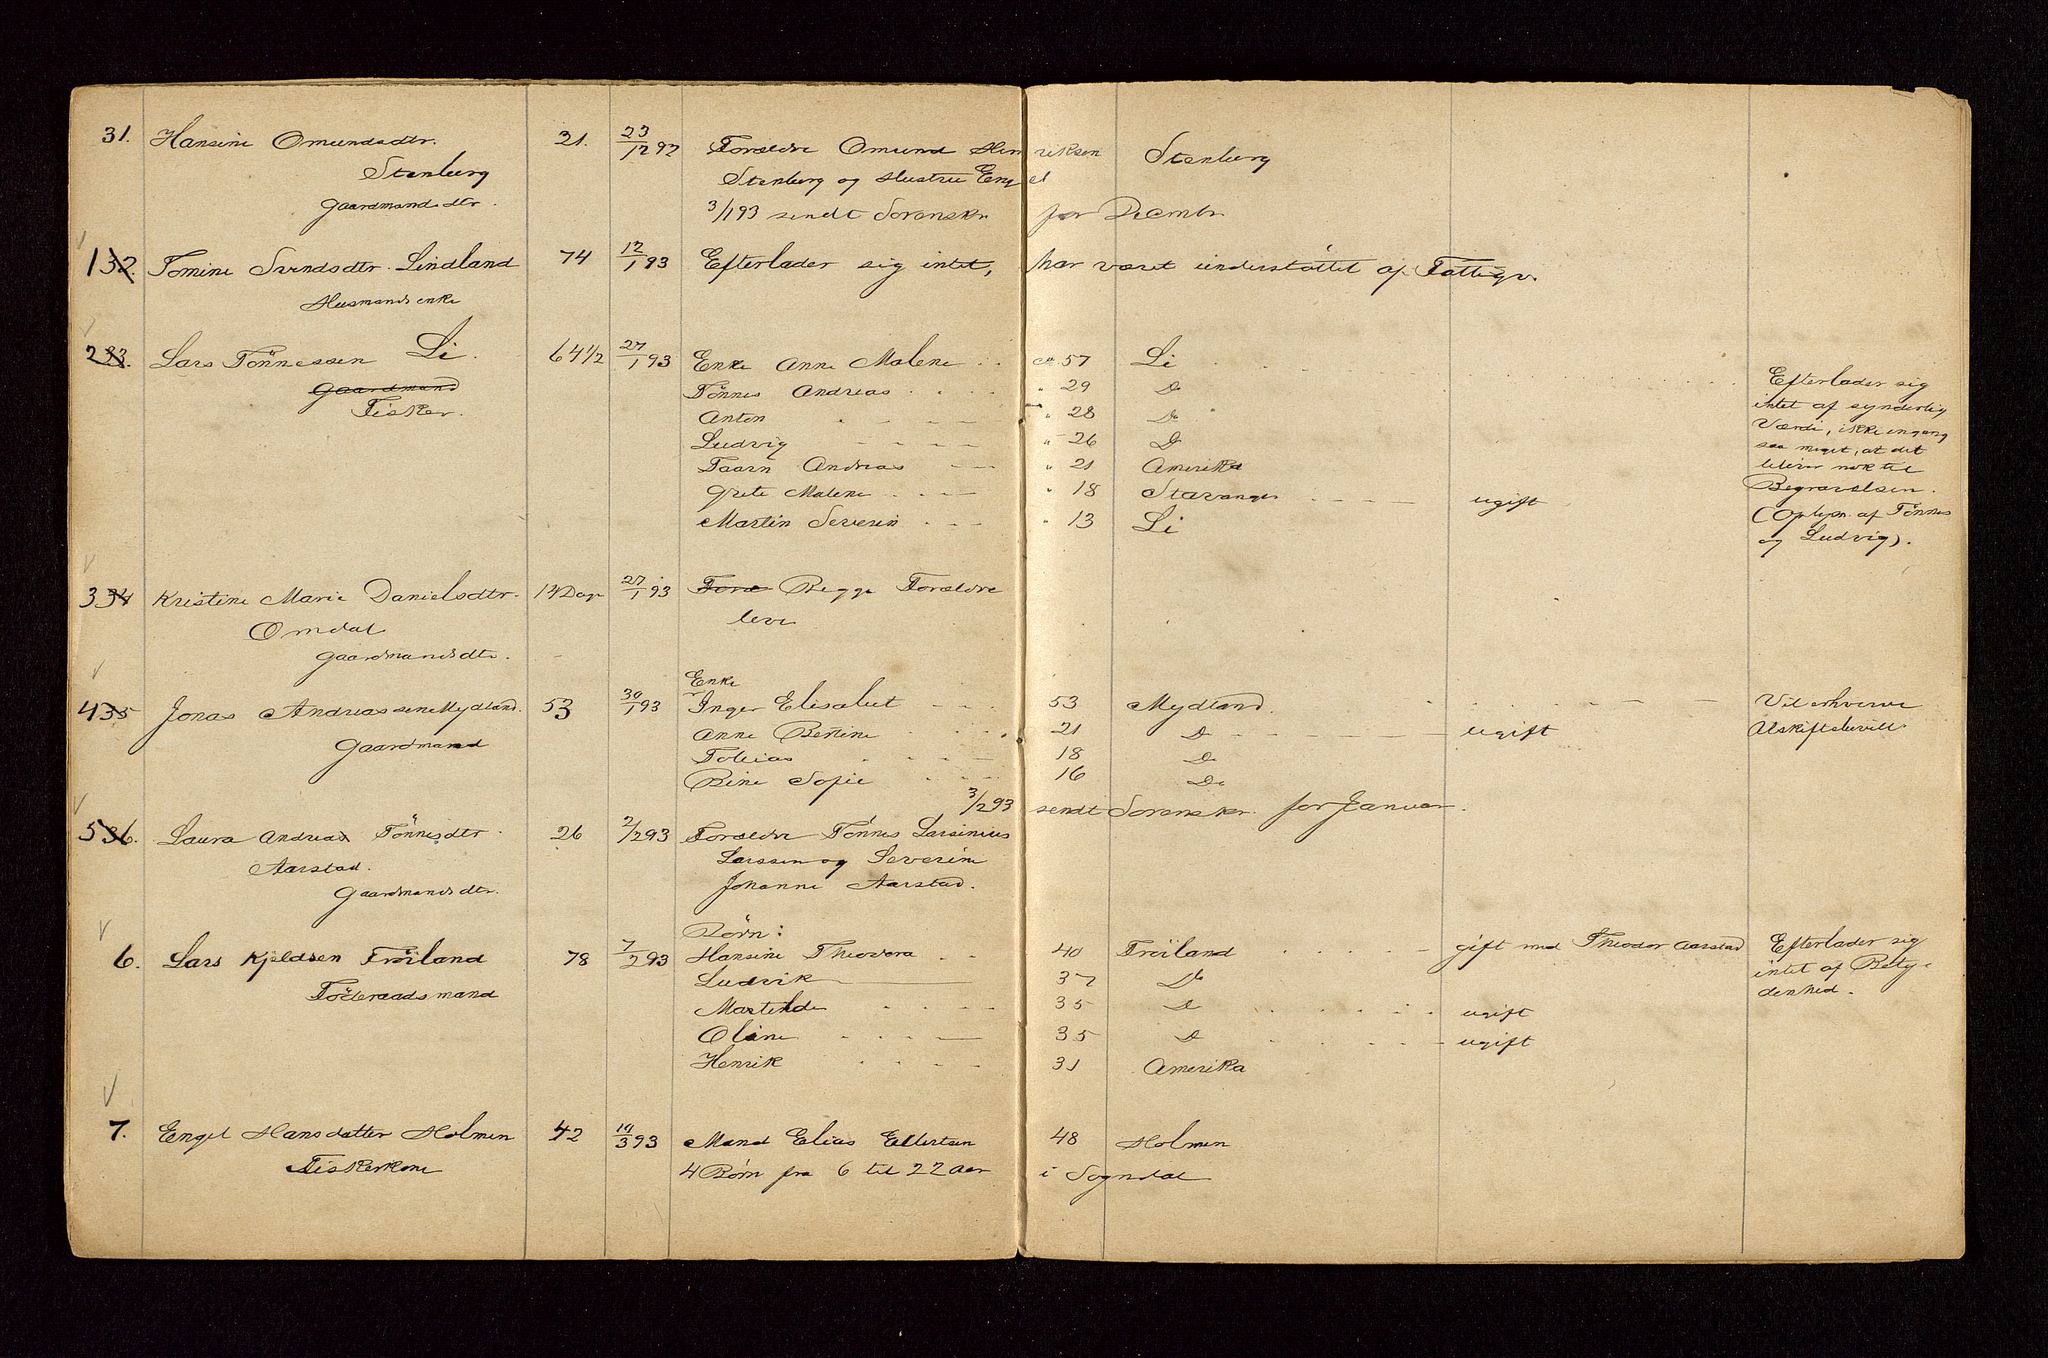 31. Hansine Omundsdtr. 21. 23/12 92 Forældre Omund Henriksen Stenberg
Stenberg Stenberg og Hustru Engel
Gaardmandsdtr. 3/1 93 sendt Sorenskr for Decmbr.
1 32. Tomine Svendsdtr. Lindland 74 12/1 93 Efterlader sig intet, har været understøttet af Fattigv.
Husmandsenke
2 33. Lars Tönnessen Li. 64 1/2 27/1 93 Enke Anne Malene ca 57 Li
Gaardmand Tönnes Andreas " 29 Do Efterlader sig
Fisker. Anton " 28 Do intet af synderlig
Ludvig " 26 Do Værdi, ikke engang
Taarn Andreas " 21 Amerika saa meget, at det
Grete Malene " 18 Stavanger ugift bliver nok til
Martin Severin " 13 Li Begravelsen.
(Oplysn. af Tönnes
og Ludvig).
3 34 Kristine Marie Danielsdtr. 14 Dage 27/1 93 Foræ Begge Forældre
Omdal leve
Gaardmandsdtr.
Enke
4 35 Jonas Andreassen Mydland. 53 30/1 93 Inger Elisabet 53 Mydland. Vil erhverve
Gaardmand Anne Bertine 21 Do ugift Uskiftebevill.
Tobias 18 Do
Bine Sofie 16 Do
3/2 93 sendt Sorenskr. for Januar.
5 36. Laura Andrea Tönnesdtr. 26 2/2 93 Forældre Tönnes Larsinius
Aarstad. Larssen og Severine
Gaardmandsdtr. Johanne Aarstad.
Börn:
6. Lars Kjeldsen Fröiland 78 7/2 93 Hansine Theodora 40 Fröiland gift med Theodor Aarstad Efterlader sig
Föderaadsmand Ludvik 37 Do intet af Bety-
Martilde 35 Do ugift denhed.
Oline 35 Do ugift
Henrik 31 Amerika
7. Engel Hansdatter Holmen 42 10/3 93 Mand Elias Ellertsen 48 Holmen
Fiskerkone 4 Börn fra 6 til 22 Aar i Sogndal